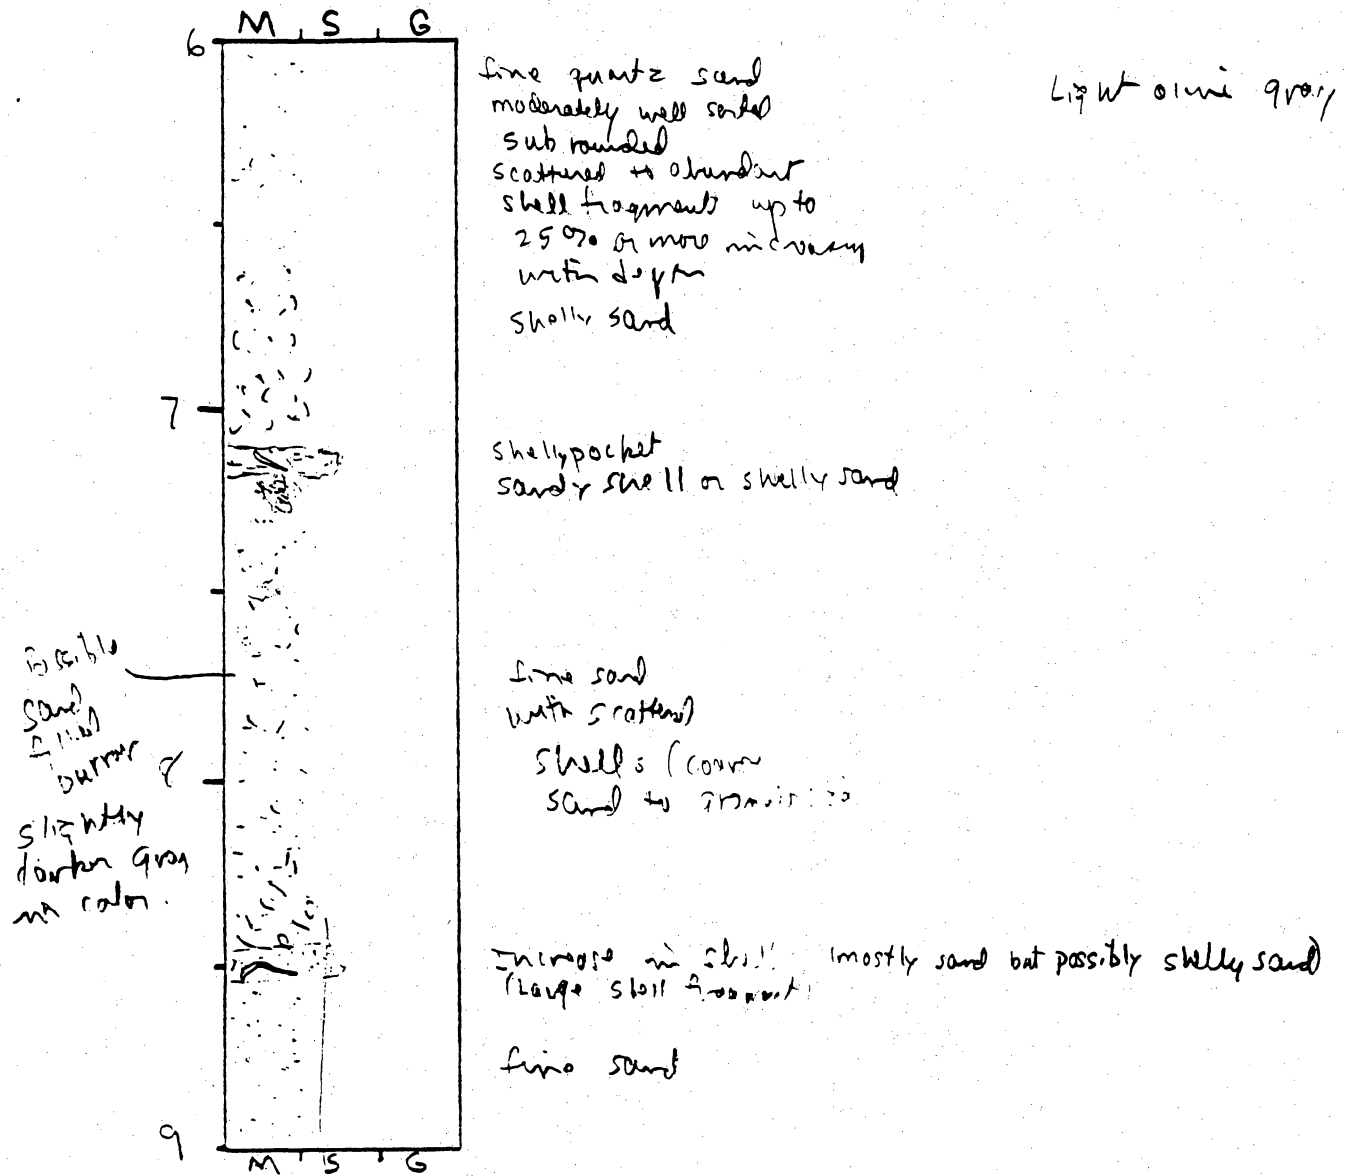 M S G
6
fine quartz sand
moderately well sorted
sub rounded
scattered to abundant
shell fragments up to
25% or more increasing
with depth
shelly sand
Light olive gray
7
shelly pocket
sandy shell or shelly sand
Possible
sand
filled
burrow
slightly
darker gray
in color.
fine sand
with scattered
shells (coarse
sand to
8
Increase in shell (mostly sand but possibly shelly sand)
(large shell fragment)
fine sand
9
M S G